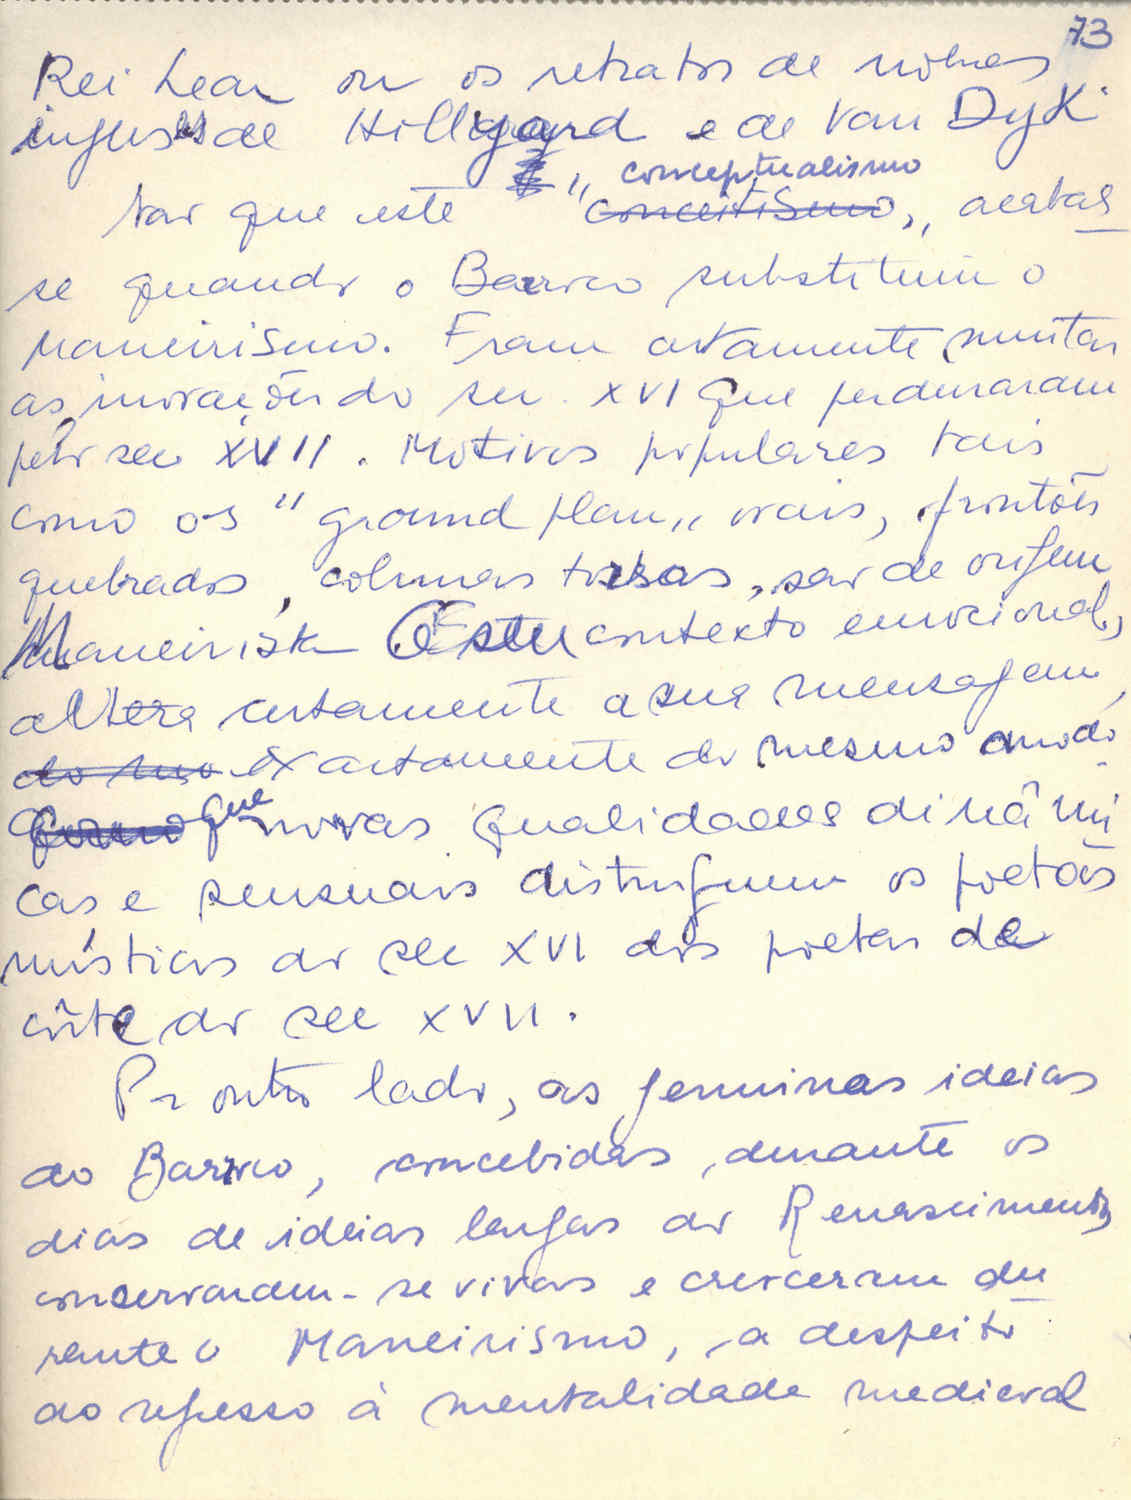 73
Rei Lear ou os retratos de nobres
ingleses de Hillyard e de Van Dyk
conceptualismo
Não que este " conceitismo ,, acabas
se quando o Barroco substituiu o
Maneirismo. Foram certamente muitas
as inovações do sec. XVI que perduraram
pelo sec XVII. Motivos populares tais
como os " ground plan ,, ovais, frontões
quebrados, colunas torsas, são de origem
Maneirista O seu contexto emocional,
altera certamente a sua mensagem,
do mesmo exactamente do mesmo modo
como que novas qualidades dinâmi
cas e sensuais distinguem os poetas
místicos do sec XVI dos poetas da
côrte do sec XVII.
Por outro lado, as genuinas ideias
do Barroco, concebidas durante os
dias de ideias largas do Renascimento,
conservaram-se vivas e cresceram du
rante o Maneirismo, a despeito
do regresso à mentalidade medieval